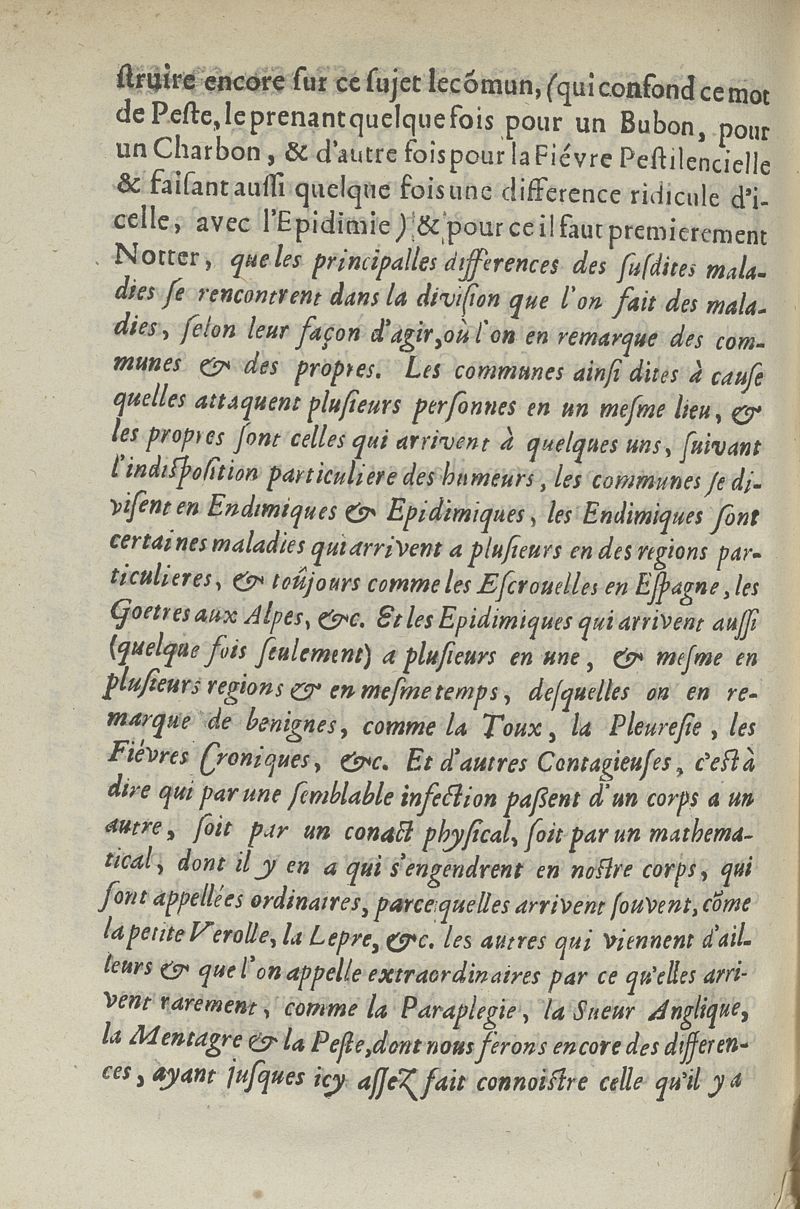 ſtruire encore ſur ce ſujet le cõmun, (qui confond ce mot
de Peſte, le prenant quelque fois pour un Bubon, pour
un Charbon, & d'autre fois pour la Fiévre Peſtilencielle
& faiſant auſſi quelque fois une difference ridicule d'i-
celle, avec l'Epidimie) & pour ce il faut premierement
Notter, que les principalles differences des ſuſdites mala-
dies ſe rencontrent dans la diviſion que l'on fait des mala-
dies, ſelon leur façon d'agir, où l'on en remarque des com-
munes & des propres. Les communes ainſi dites à cauſe
quelles attaquent pluſieurs perſonnes en un meſme lieu, &
les propres ſont celles qui arrivent à quelques uns, ſuivant
l'indiſpoſition particuliere des humeurs, les communes ſe di-
viſent en Endimiques & Epidimiques, les Endimiques ſont
certaines maladies qui arrivent a pluſieurs en des regions par-
ticulieres, & toûjours comme les Eſcrouelles en Eſpagne, les
Goetres aux Alpes, &c. Et les Epidimiques qui arrivent auſſi
(quelque fois ſeulement) a pluſieurs en une, & meſme en
pluſieurs regions & en meſme temps, deſquelles on en re-
marque de benignes, comme la Toux, la Pleureſie, les
Fiévres Croniques, &c. Et d'autres Contagieuſes, c'eſt à
dire qui par une ſemblable infection paſſent d'un corps a un
autre, ſoit par un conact phyſical, ſoit par un mathema-
tical, dont il y en a qui s'engendrent en noſtre corps, qui
ſont appellées ordinaires, parce quelles arrivent ſouvent, cõme
la petite Verolle, la Lepre, &c. les autres qui viennent d'ail-
leurs & que l'on appelle extraordinaires par ce qu'elles arri-
vent rarement, comme la Paraplegie, la Sueur Anglique,
la Mentagre & la Peſte, dont nous ferons encore des differen-
ces, ayant juſques icy aſſeZ fait connoiſtre celle qu'il y a